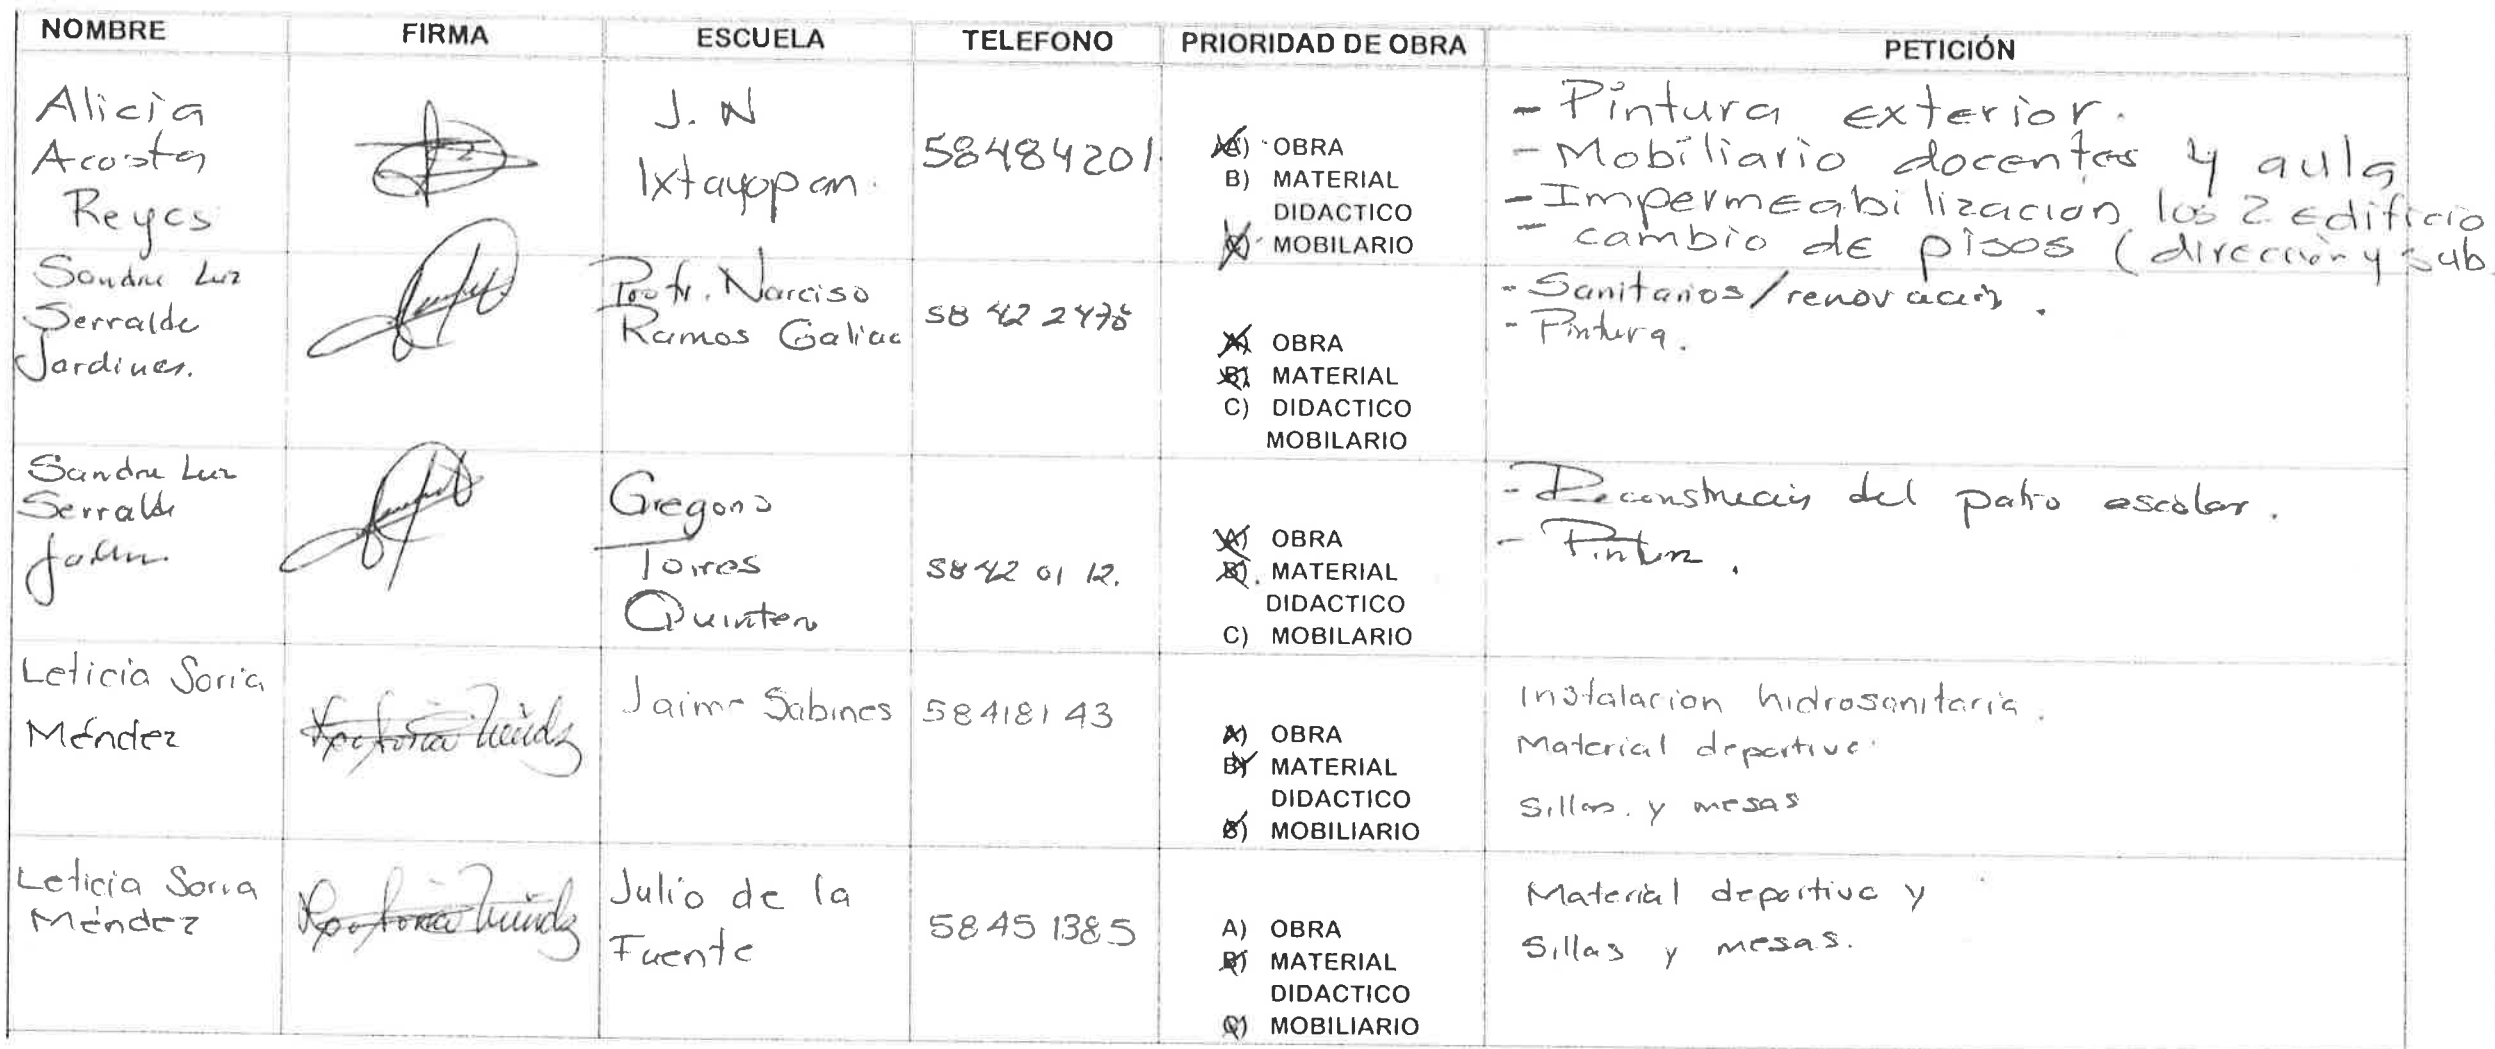 NOMBRE FIRMA ESCUELA TELEFONO PRIORIDAD DE OBRA PETICIÓN
Alicia
Acosta
Reyes
J. N
Ixtayopan.
58484201.
A) OBRA
B) MATERIAL
DIDACTICO
C) MOBILARIO
- Pintura exterior.
- Mobiliario docentes y aula
- Impermeabilización los 2 edificio
- cambio de pisos (dirección y sub
Sandra Luz
Serralde
Jardines.
Profr. Narciso
Ramos Galicia
58 42 2478
A) OBRA
B) MATERIAL
C) DIDACTICO
MOBILARIO
- Sanitarios/renovación.
- Pintura.
Sandra Luz
Serralde
Gregorio
Torres
Quintero
58 42 01 12.
A) OBRA
B) MATERIAL
DIDACTICO
C) MOBILARIO
- Reconstrucción del patio escolar.
- Pintura.
Leticia Soria
Méndez
Jaime Sabines
58418143
A) OBRA
B) MATERIAL
DIDACTICO
C) MOBILIARIO
Instalacion hidrosanitaria.
Material deportivo.
Sillas. y mesas
Leticia Soria
Méndez
Julio de la
Fuente
58451385
A) OBRA
B) MATERIAL
DIDACTICO
C) MOBILIARIO
Material deportivo y
Sillas y mesas.